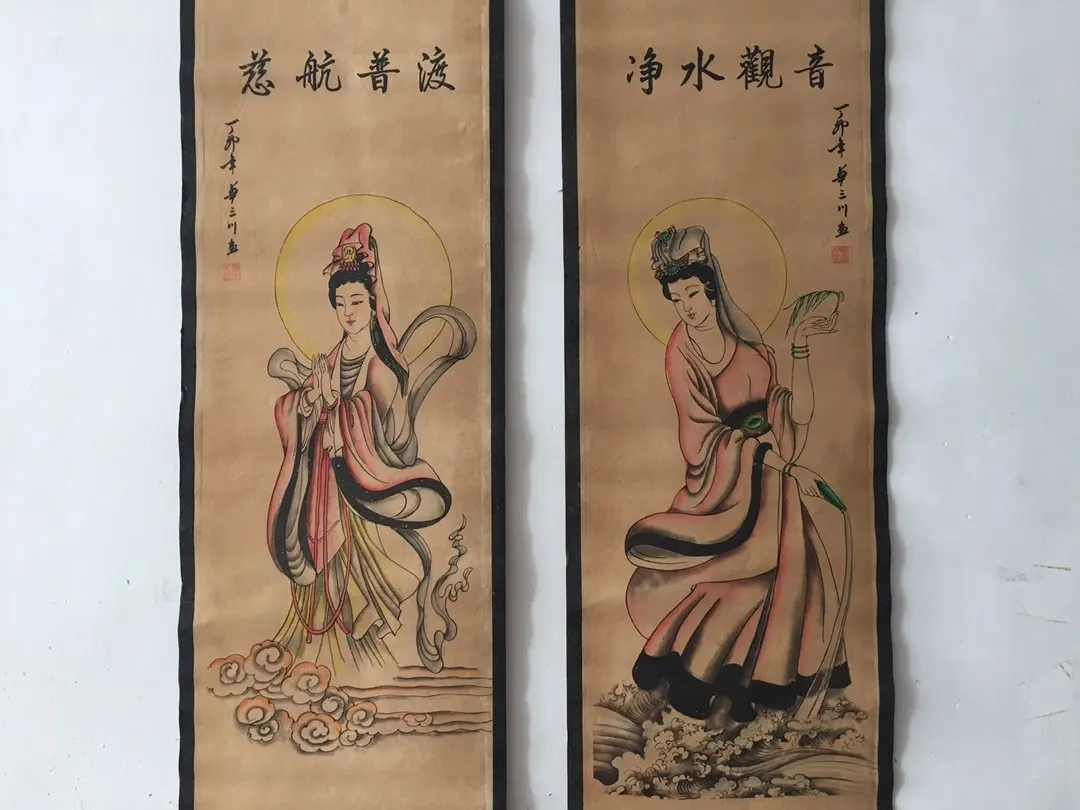 慈航普渡
丁卯年 華三川画
净水觀音
丁卯年 華三川画